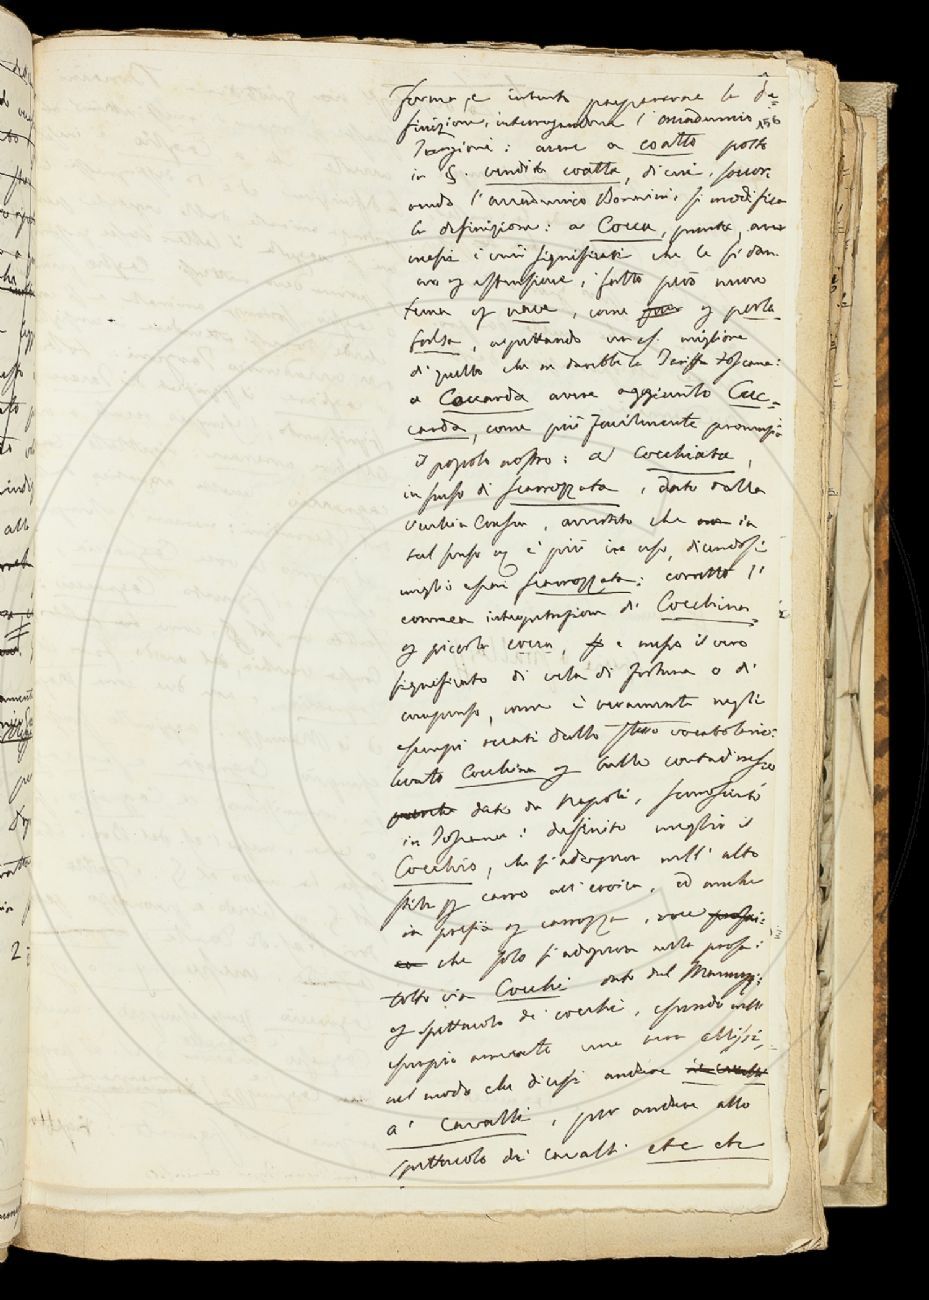 forma, e intanto preparerone la de=
156
finizione, interrogandone l'accademico
: avere a coatto posto
in §. vendita coatta, dicesi, secon
ando l'accademico Bonaini, si modifica
la definizione: a Cocca, punta, aver
messi i varii significati che le si dan
no per estensione, fatto però nuovo
tema per nave, come per perla
falsa, aspettando un es. migliore
di quello che ne darebbe la Tariffa toscana:
a Coccarda avere aggiunto Cuc=
carda, come più facilmente pronunzia
il popolo nostro: a Cocchiata,
in senso di scarrozzata, dato dalla
vecchia Crusca, avvertito che in
tal senso è più in uso, dicendosi
meglio scarrozzata: corretto l'
erronea interpetrazione di Cocchina
per piccola cocca, e messo il vero
significato di vela di fortuna o di
, come è veramente negli
esempi recati dallo stesso vocabolario:
levato Cocchina per ballo contadinesco
dato da Napoli, sconosciuto
in Toscana: definito meglio il
Cocchio, che si adopera nell'alto
stile per carro all'eroica, ed anche
in poesia per carrozza, voce
che solo si adopera nella prosa:
tolto via Cocchi dato dal Manuzzi
per spettacolo di cocchi, essendo nell'
esempio arrecato una mera ellissi,
nel modo che dicesi andare
a' Cavalli, per andare allo
spettacolo dei cavalli etc etc